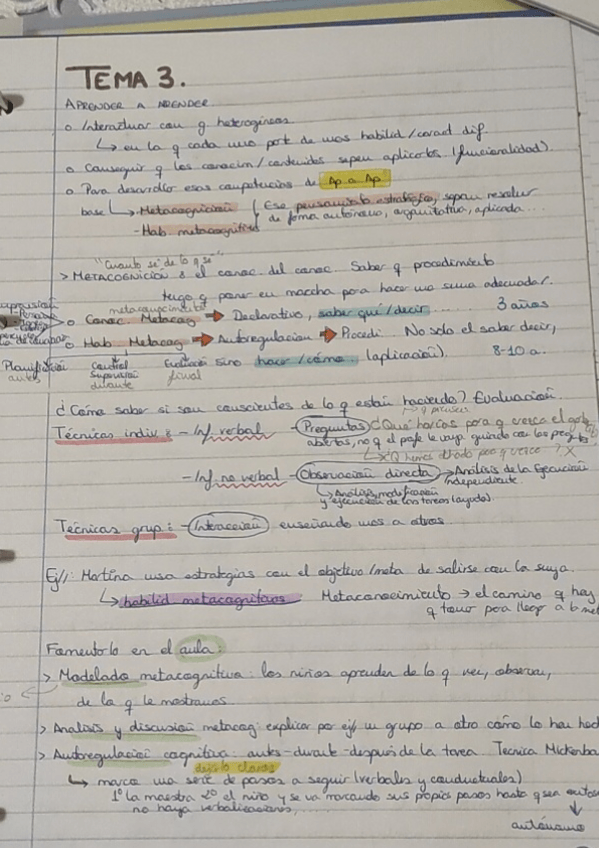 TEMA 3.
APRENDER A APRENDER
o Interactuar con g heterogéneos
↳ en la q cada uno part de unas habilid/caract dif.
o Conseguir q los conocim/contenidos sepan aplicarlos (funcionalidad).
o Para desarrollar esas competencias de Ap a Ap
base ↳ - Metacognición ( Ese pensamiento estratégico, sepan resolver
- Hab. metacognitivas de forma autónoma, organizativa, aplicada...
"Cuanto sé de lo q sé"
> METACOGNICIÓN : el conoc. del conoc. Saber q procedimiento
tengo q poner en marcha para hacer una suma adecuada/.
metaconocimiento
o Conoc. Metacog → Declarativo, saber qué/decir... 3 años
o Hab. Metacog → Autoregulación → Procedi. No solo el saber decir,
Planificación antes Control Supervisión durante Evaluación final sino hacer/cómo (aplicación). 8-10 a.
¿Cómo saber si son conscientes de lo q están haciendo? Evaluación.
Técnicas indiv : - Inf verbal - Preguntas ¿Qué harías para q crezca el
abiertas, no q el profe le vaya guiando con las pregts
- Inf. no verbal - Observación directa → Análisis de la Ejecución
independiente
↳ Análisis, modificación
y ejecución de las tareas (ayuda).
Técnicas grup : - Interacción enseñando unos a otros...
Ej/: Martina usa estrategias con el objetivo/meta de salirse con la suya.
↳ habilid metacognitivas Metaconocimiento → el camino q hay
q tomar para llegar a la
Fomentarlo en el aula:
> Modelado metacognitivo: los niños aprenden de lo q ven, observan,
de lo q le mostramos
> Analisis y discusión metacog: explicar por ej/ un grupo a otro cómo lo han
> Autoregulación cognitiva: antes-durante-después de la tarea. Tecnica
dejarlo claros
↳ marca una serie de pasos a seguir (verbales y conductuales)
1º la maestra 2º el niño y se va marcando sus propios pasos hasta q sea
no haya verbalizaciones,...
autónomo